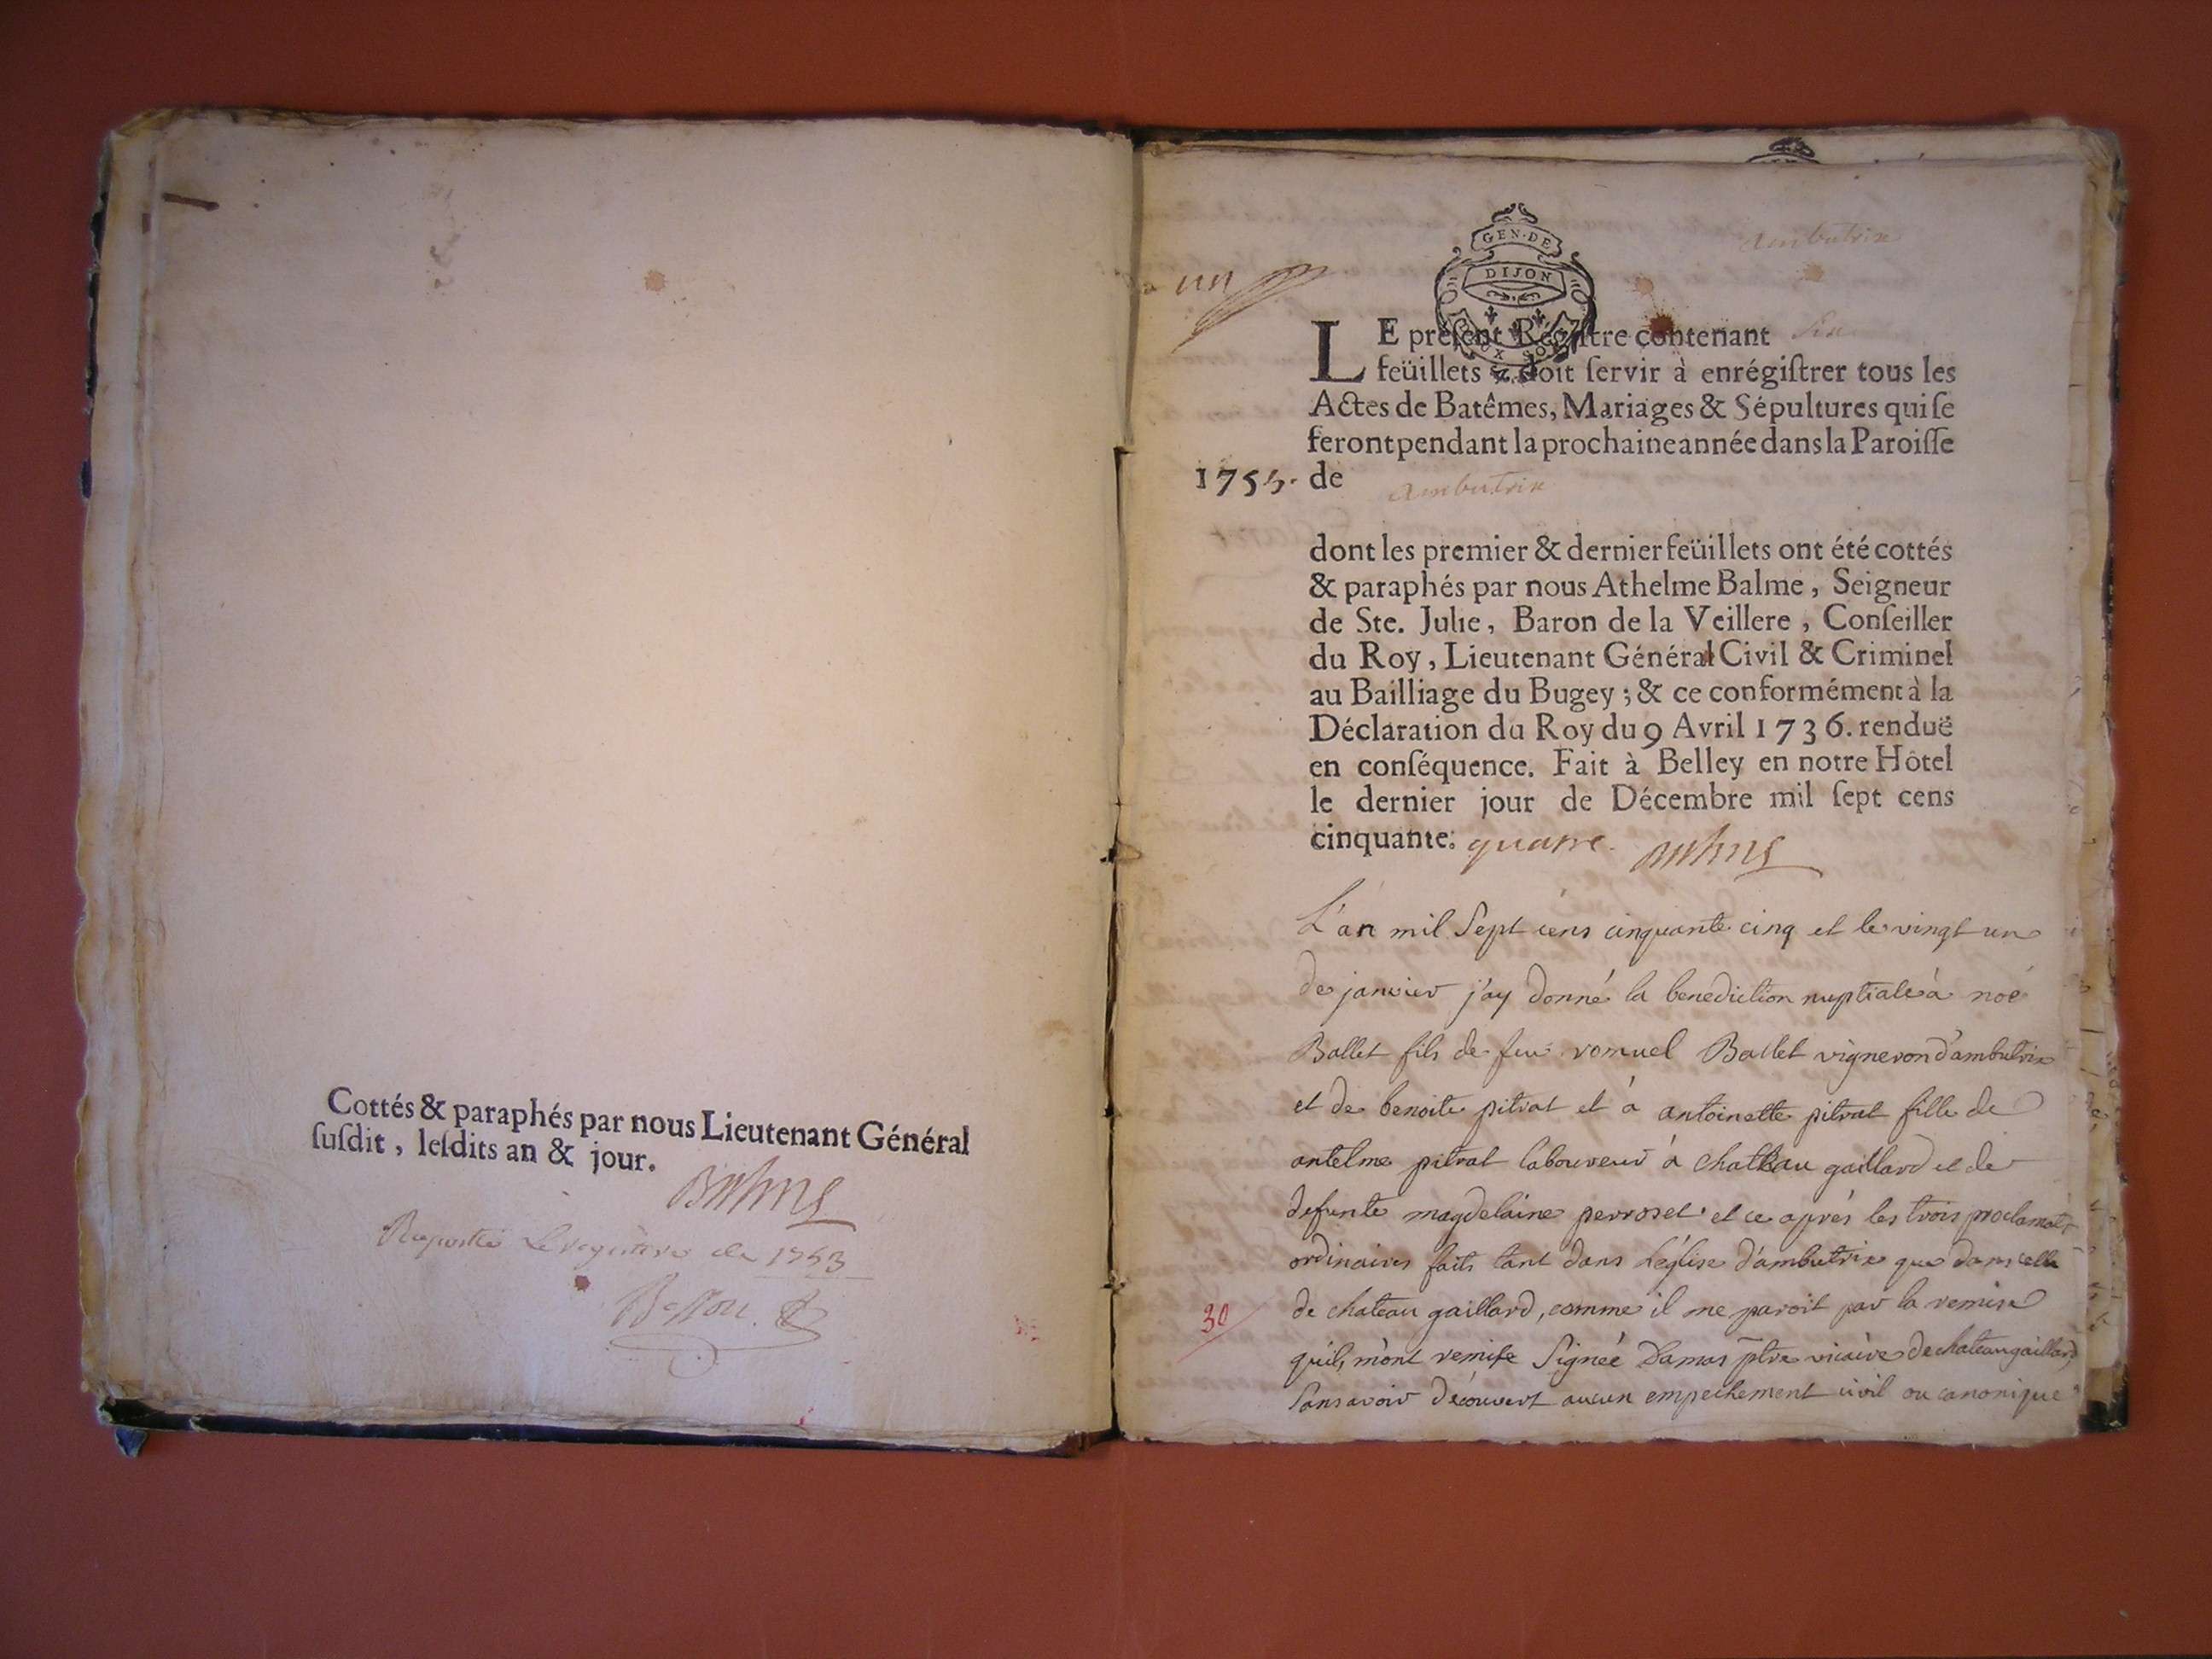 Cottés & paraphés par nous Lieutenant Général
ſuſdit, leſdits an & jour.
Raporté le registre de 1753
un
GEN·DE
DIJON
ambutrix
LE preſent Régiſtre contenant Six
feüillets & doit ſervir à enrégiſtrer tous les
Actes de Batêmes, Mariages & Sépultures qui ſe
feront pendant la prochaine année dans la Paroiſſe
1755. de ambutrix
dont les premier & dernier feüillets ont été cottés
& paraphés par nous Athelme Balme, Seigneur
de Ste. Julie, Baron de la Veillere, Conſeiller
du Roy, Lieutenant Général Civil & Criminel
au Bailliage du Bugey; & ce conformément à la
Déclaration du Roy du 9 Avril 1736. renduë
en conſéquence. Fait à Belley en notre Hôtel
le dernier jour de Décembre mil ſept cens
cinquante. quatre.
L'an mil Sept cens cinquante cinq et le vingt un
de janvier j'ay donné la benediction nuptiale à noé
Ballet fils de feu romuel Ballet vigneron d'ambutrix
et de benoite pitrat et à antoinette pitrat fille de
antelme pitrat laboureur à chateau gaillard et de
defunte magdelaine perroset et ce aprés les trois proclamat
ordinaires faits tant dans l'église d'ambutrix que dans celle
30 de chateau gaillard, comme il me paroit par la remise
quils m'ont remise Signée Damas ptre vicaire de chateaugaillard
Sans avoir découvert aucun empechement civil ou canonique